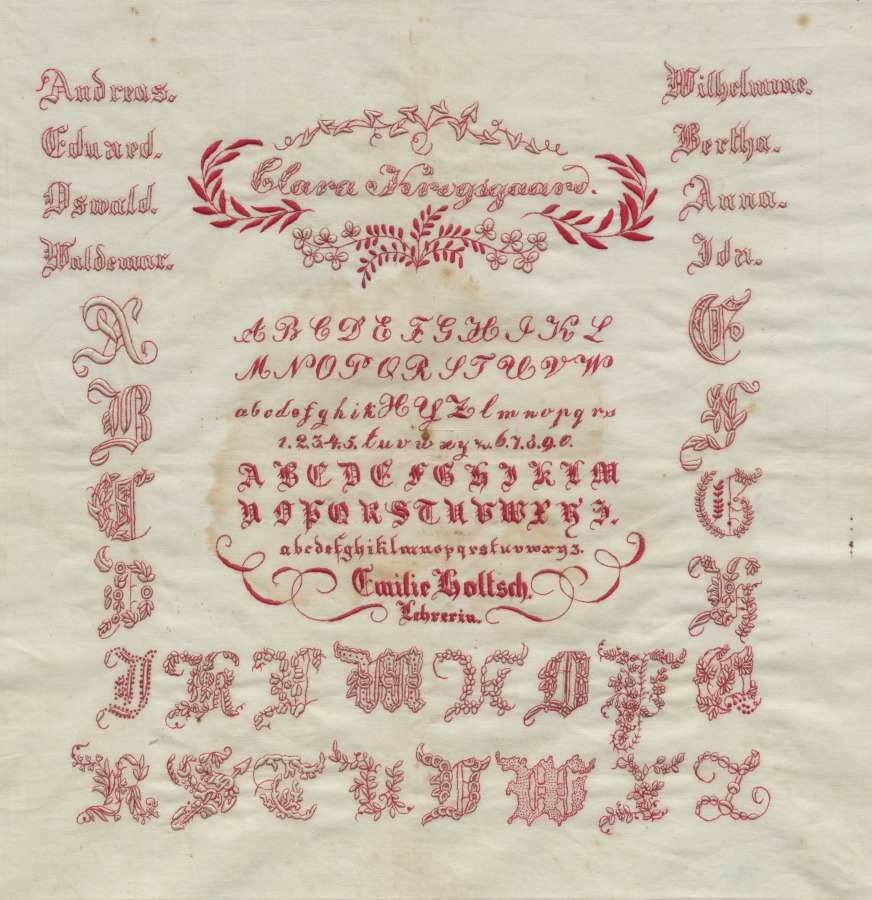 Andreas.
Eduard.
Oswald.
Waldemar.
Wilhelmine.
Bertha.
Anna.
Ida.
Clara
A B C D E F G H I K L
M N O P Q R S T U V W
a b c d e f g h i k X Y Z l m n o p q r s
1. 2. 3. 4. 5. t u v w x y z. 6. 7. 8. 9. 0.
A B C D E F G H I K L M
N O P Q R S T U V W X Y Z.
a b c d e f g h i k l m n o p q r s t u v w x y z.
Emilie Holtsch.
Lehrerin.
A
B
C
D
E
F
G
H
I K L M N O P Q
R S T U V W X Z